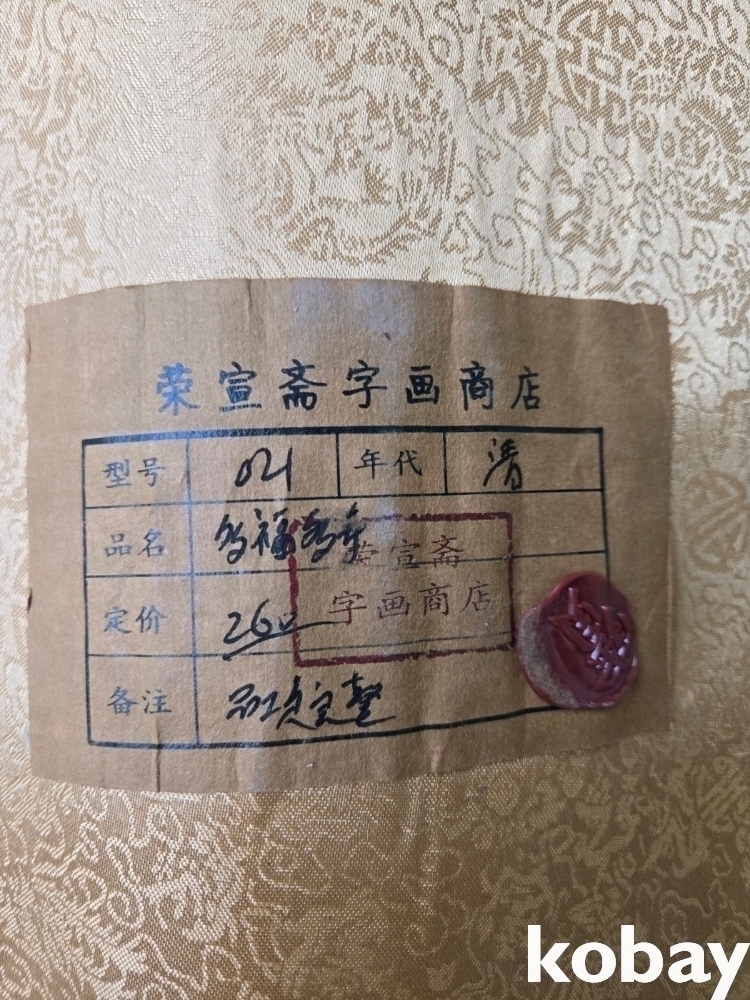 荣宣斋字画商店
型号 021 年代 清
品名 多福多寿
荣宣斋
字画商店
定价 260
备注 品项完整
kobay